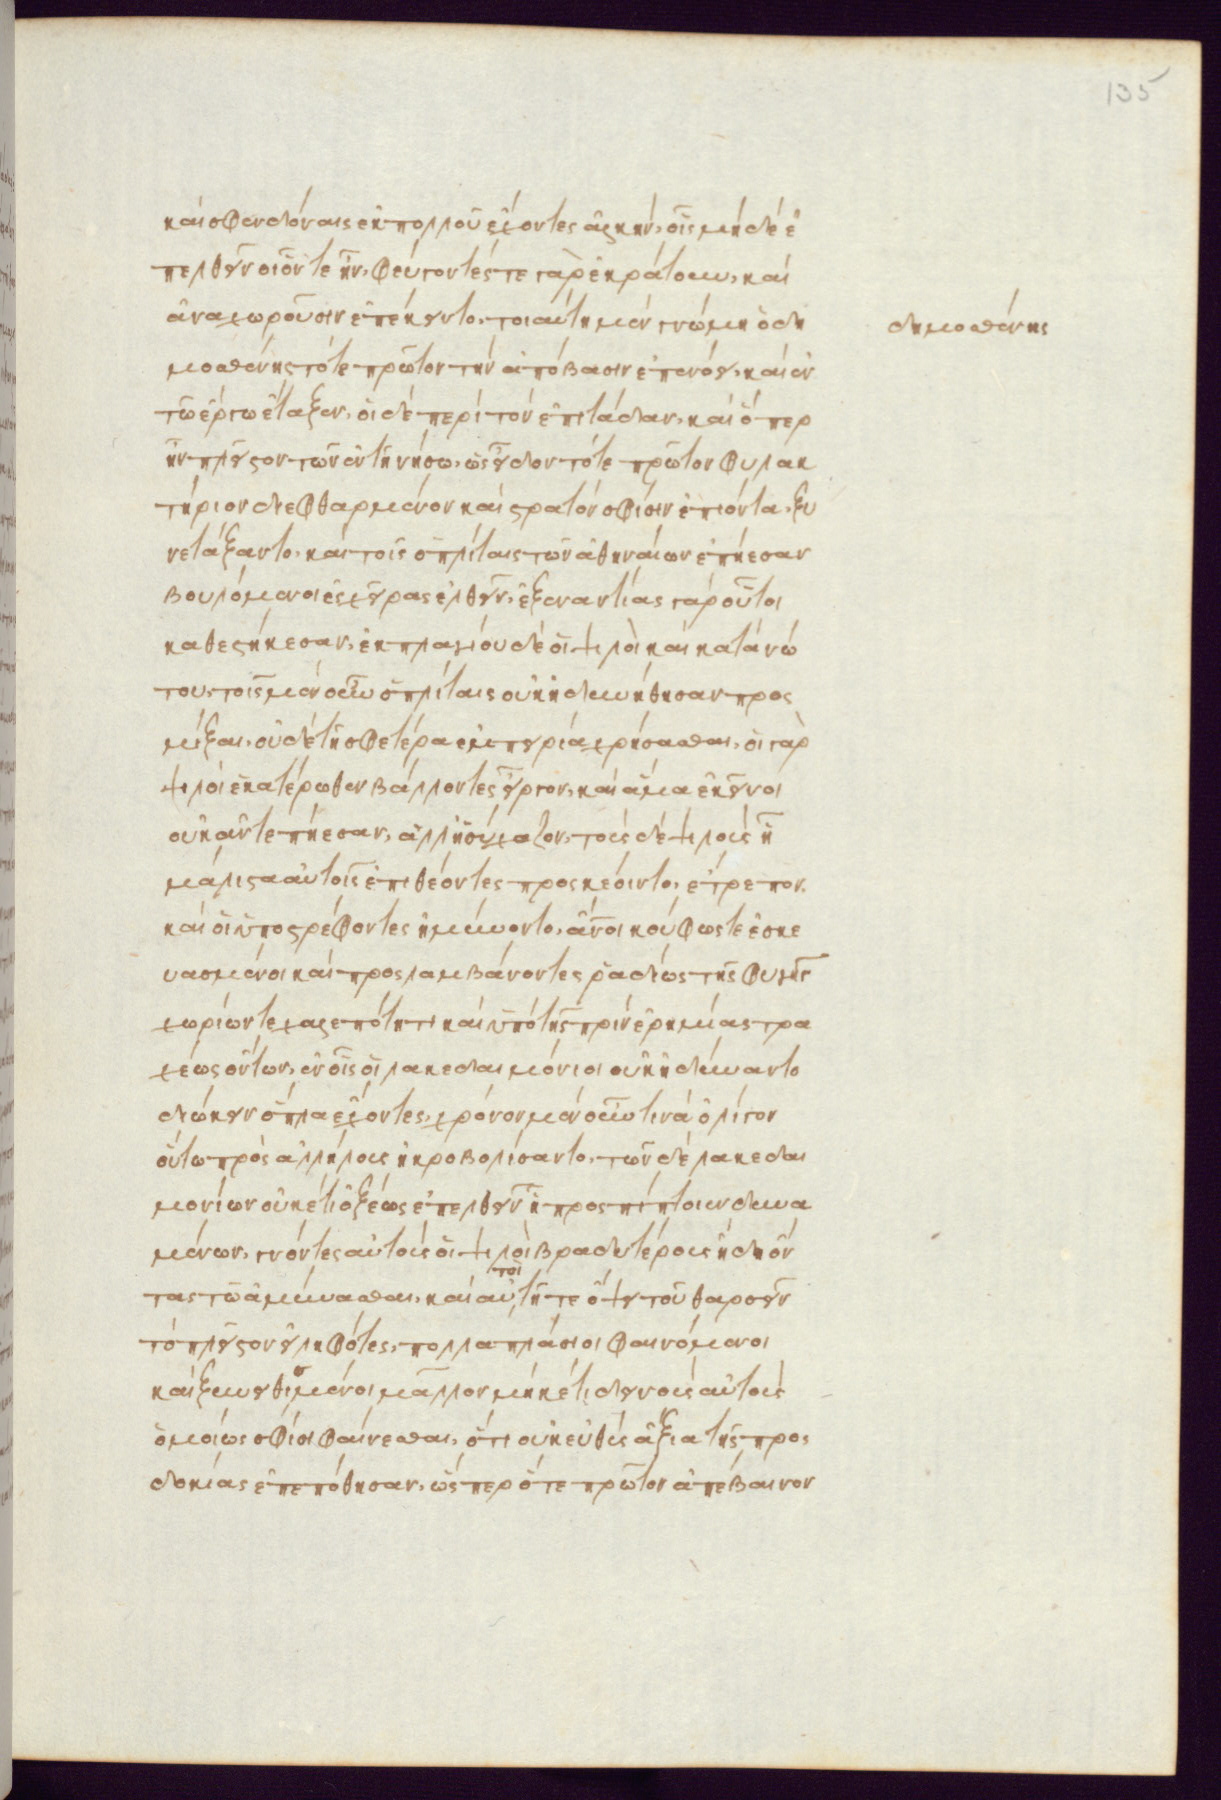 135
καὶ σφενδόναις ἐκ πολλοῦ ἔχοντες ἀλκήν, οἷς μηδὲ ἐ
πελθεῖν οἷόν τε ἦν, φεύγοντές τε γὰρ ἐκράτουν, καὶ
ἀναχωροῦσιν ἐπέκειντο, τοιαύτη μὲν γνώμη ὁ δη
δημοσθένης
μοσθένης τότε πρῶτον τὴν ἀπόβασιν ἐπενόει, καὶ ἐν
τῶ ἔργω ἔταξεν, οἱ δὲ περὶ τὸν ἐπιτάδαν, καὶ ὅπερ
ἦν πλεῖστον τῶν ἐν τῆ νήσω, ὡς εἶδον τότε πρῶτον φυλακ
τήριον διεφθαρμένον καὶ στρατὸν σφίσιν ἐπιόντα, ξυ
νετάξαντο, καὶ τοῖς ὁπλίταις τῶν ἀθηναίων ἐπήεσαν
βουλόμενοι ἐς χεῖρας ἐλθεῖν, ἐξ ἐναντίας γὰρ οὗτοι
καθεστήκεσαν, ἐκ πλαγίου δὲ οἱ ψιλοὶ καὶ κατὰ νώ
του, τοῖς μὲν οὖν ὁπλίταις οὐκ ἠδυνήθησαν προς
μίξαι, οὐδὲ τῆ σφετέρα ἐμπειρία χρήσασθαι, οἱ γὰρ
ψιλοὶ ἑκατέρωθεν βάλλοντες εἶργον, καὶ ἅμα ἐκεῖνοι
οὐκ ἀντεπήεσαν, ἀλλ' ἡσύχαζον, τοὺς δὲ ψιλοὺς ἦ
μάλιστα αὐτοῖς ἐπιθέοντες προσκέοιντο, ἔτρεπον,
καὶ οἱ ὑποστρέφοντες ἠμύνοντο, ἄνοι κούφως τε ἐσκε
υασμένοι καὶ προσλαμβάνοντες ῥαδίως τῆς φυγῆς
χωρίων τε χαλεπότητι καὶ ὑπὸ τῆς πρὶν ἐρημίας τρα
χέων ὄντων, ἐν οἷς οἱ λακεδαιμόνιοι οὐκ ἠδύναντο
διώκειν ὅπλα ἔχοντες, χρόνον μὲν οὖν τινὰ ὀλίγον
οὕτω πρὸς ἀλλήλους ἠκροβολίσαντο, τῶν δὲ λακεδαι
μονίων οὐκέτι ὀξέως ἐπεκθεῖν ἧ προσπίπτοιεν δυνα
μένων, γνόντες αὐτοὺς οἱ ψιλοὶ βραδυτέρους ἤδη ὄν
τας τῶ ἀμύνασθαι, καὶ αὐτοὶ τῆ τε ὄψει τοῦ θαρσεῖν
τὸ πλεῖστον εἰληφότες, πολλαπλάσιοι φαινόμενοι
καὶ ξυνειθισμένοι μᾶλλον μηκέτι δεινοὺς αὐτοὺς
ὁμοίως σφίσι φαίνεσθαι, ὅτι οὐκ εὐθὺς ἄξια τῆς προς
δοκίας ἐπεπόνθεσαν, ὥσπερ ὅτε πρῶτον ἀπέβαινον